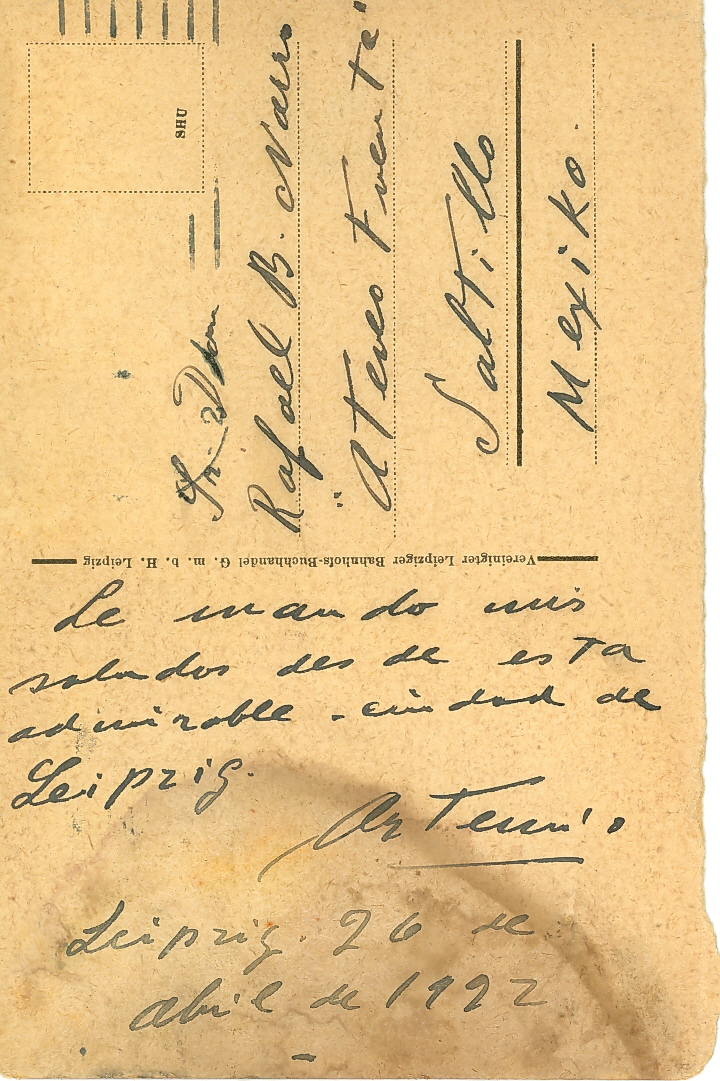 SHU
Sr. Don
Rafael B. Narro
Ateneo Fuente
Saltillo
Mexiko.
Vereinigter Leipziger Bahnhofs-Buchhandel G. m. b. H. Leipzig
Le mando mis
saludos desde esta
admirable ciudad de
Leipzig.
Artemio
Leipzig. 26 de
abril de 1922